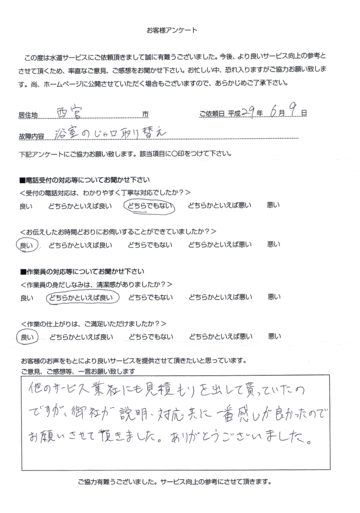 お客様アンケート
この度は水道サービスにご依頼頂きまして誠に有難うございました。今後、より良いサービス向上の参考と
させて頂くため、率直なご意見、ご感想をお聞かせ下さい。お忙しい中、恐れ入りますがご協力お願い致しま
す。尚、ホームページに公開させていただく場合もございますので、あらかじめご了承下さい。
居住地 西宮 市 ご依頼日 平成29年 6月 9日
故障内容 浴室のじゃ口取り替え
下記アンケートにご協力お願い致します。該当項目に〇印をつけて下さい。
■電話受付の対応等についてお聞かせ下さい
<受付の電話対応は、わかりやすく丁寧な対応でしたか?>
良い どちらかといえば良い どちらでもない どちらかといえば悪い 悪い
<お伝えしたお時間どおりにお伺いすることができていましたか?>
良い どちらかといえば良い どちらでもない どちらかといえば悪い 悪い
■作業員の対応等についてお聞かせ下さい
<作業員の身だしなみは、清潔感がありましたか?>
良い どちらかといえば良い どちらでもない どちらかといえば悪い 悪い
<作業の仕上がりは、ご満足いただけましたか?>
良い どちらかといえば良い どちらでもない どちらかといえば悪い 悪い
お客様のお声をもとにより良いサービスを提供させて頂きたいと思っています。
ご意見、ご感想等、一言お願い致します
他のサービス業社にも見積もりを出して貰っていたの
ですが、御社が説明・対応共に一番感じが良かったので
お願いさせて頂きました。ありがとうございました。
ご協力有難うございました。サービス向上の参考にさせて頂きます。